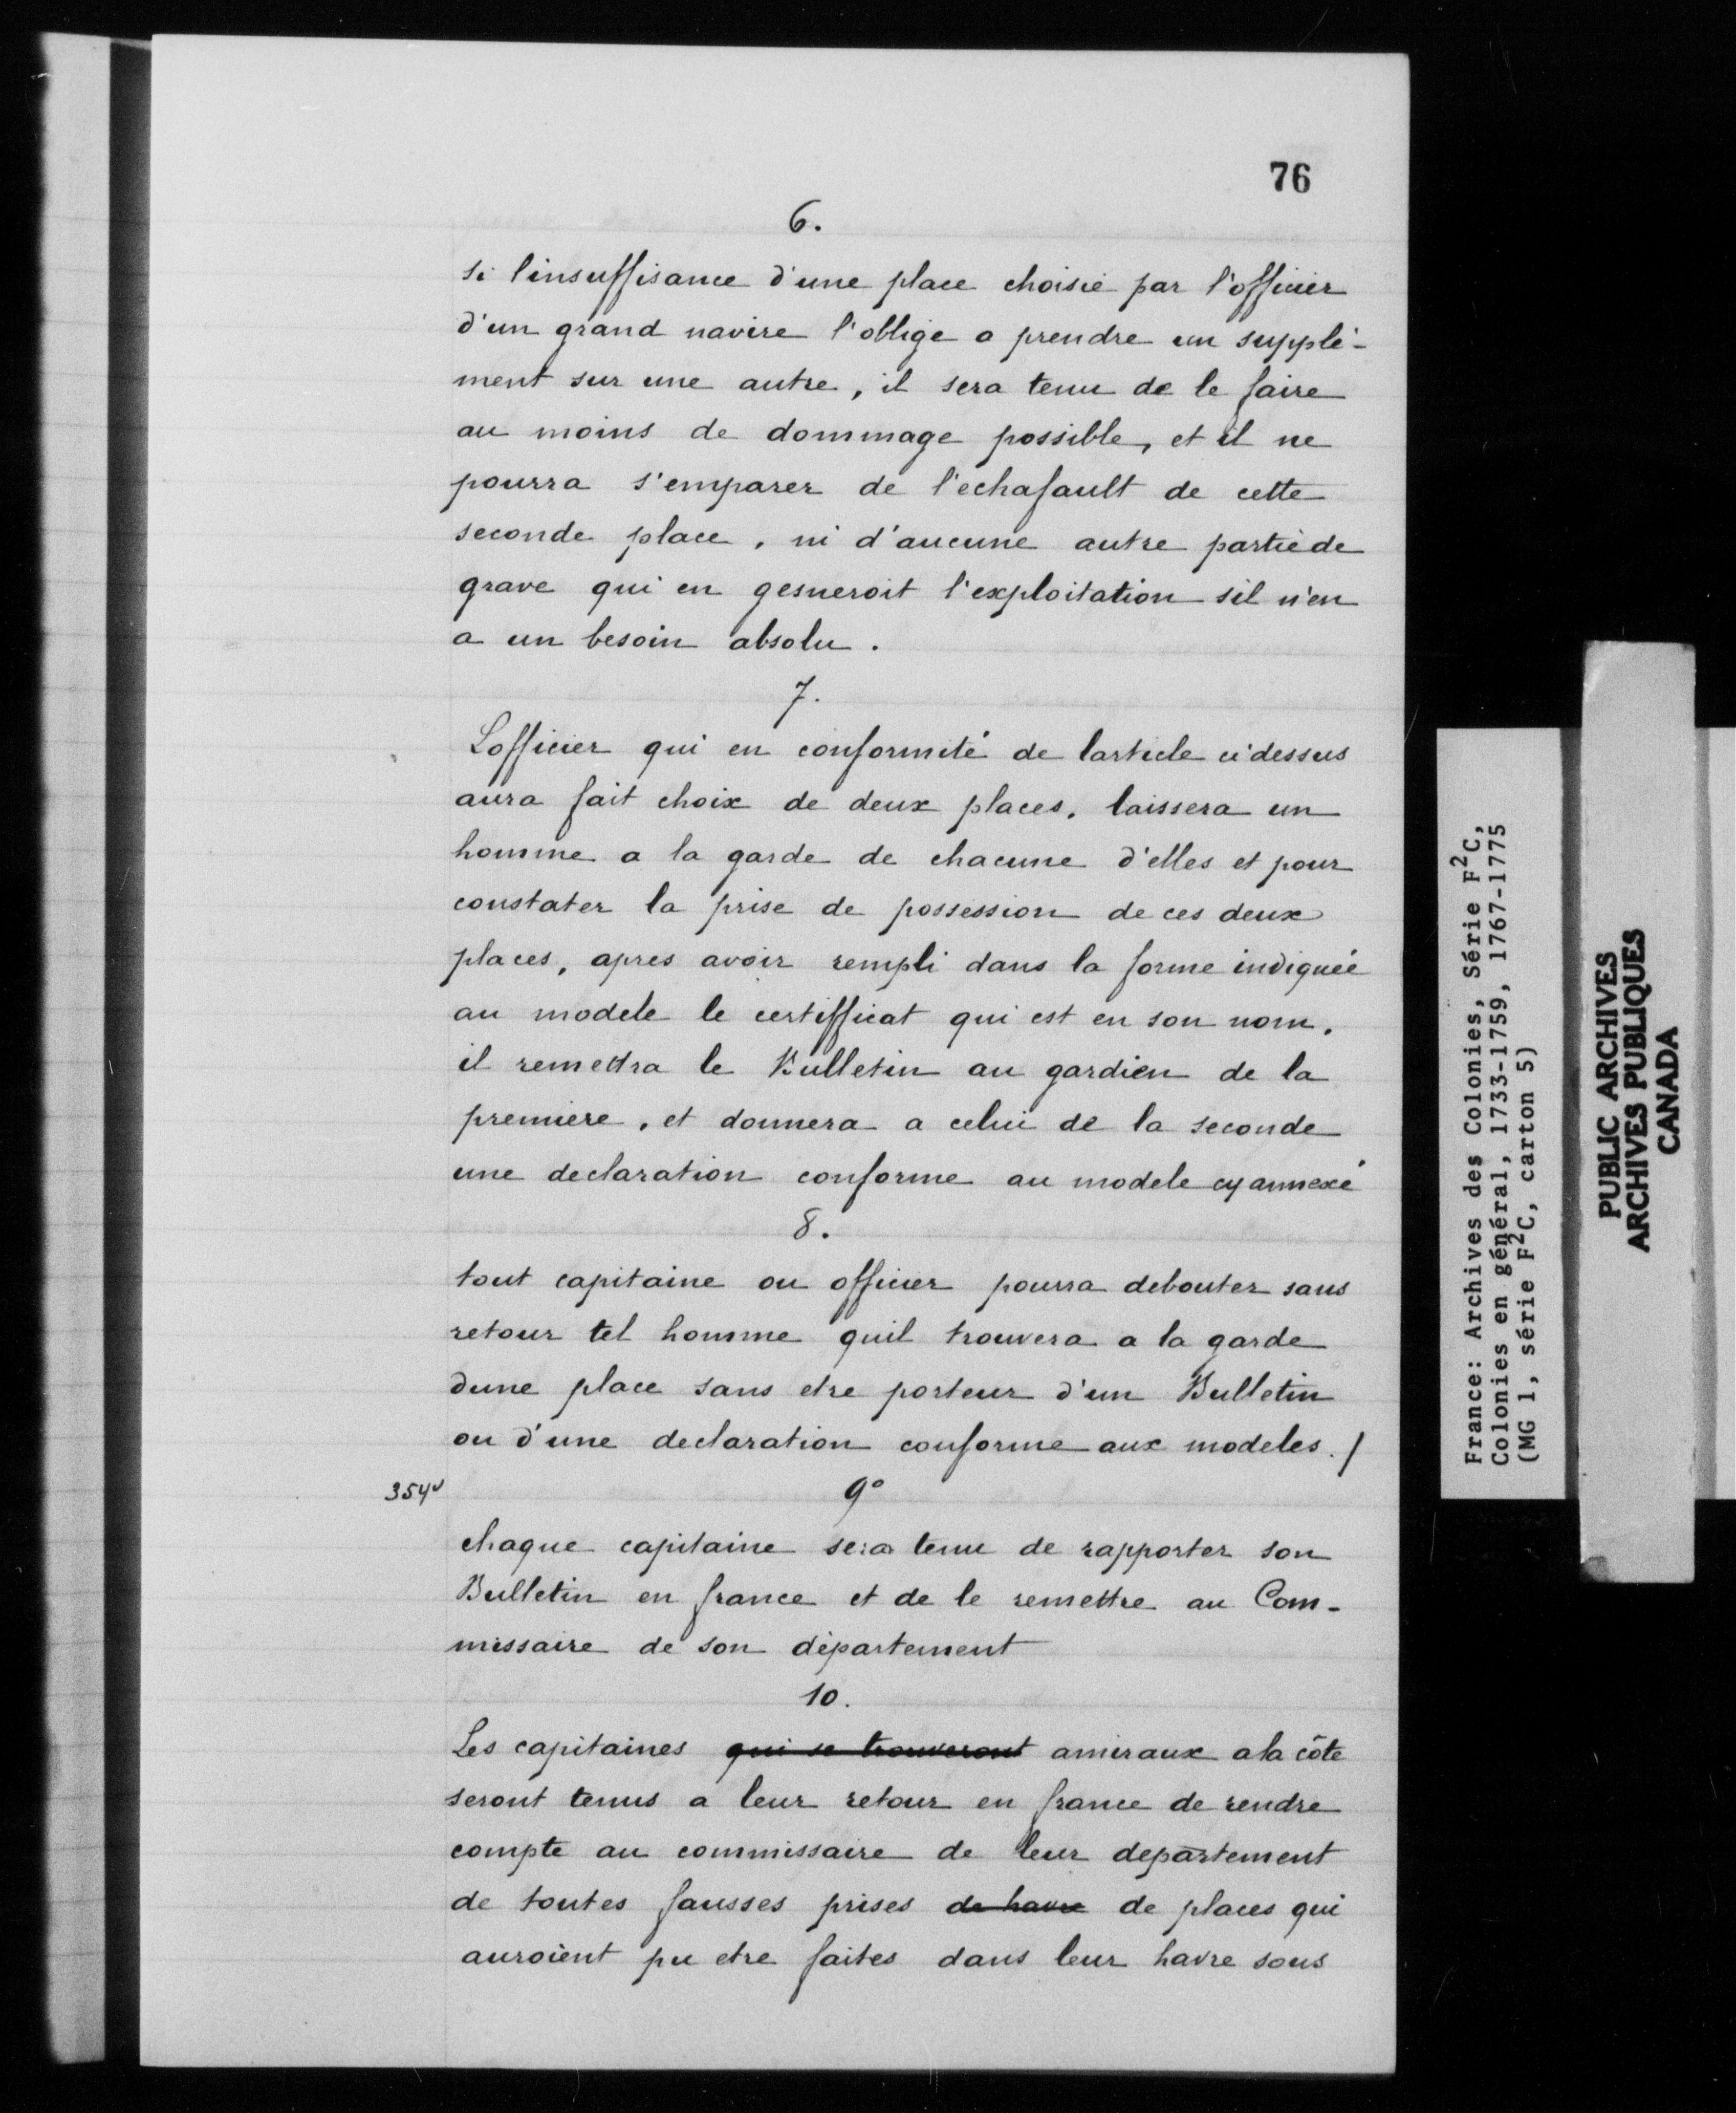 76
6.
si l'insuffisance d'une place choisie par l'officier
d'un grand navire l'oblige a prendre un supplé-
ment sur une autre, il sera tenu de le faire
au moins de dommage possible, et il ne
pourra s'emparer de l'echafault de cette
seconde place, ni d'aucune autre partie de
grave qui en gesneroit l'exploitation sil n'en
a un besoin absolu.
7.
Lofficier qui en conformité de larticle ci dessus
aura fait choix de deux places, laissera un
homme a la garde de chacune d'elles et pour
constater la prise de possession de ces deux
places, apres avoir rempli dans la forme indiquée
au modele le certifficat qui est en son nom,
il remettra le Bulletin au gardien de la
premiere, et donnera a celui de la seconde
une declaration conforme au modele cy annexé
8.
tout capitaine ou officier pourra debouter sans
retour tel homme quil trouvera a la garde
dune place sans etre porteur d'un Bulletin
ou d'une declaration conforme aux modeles. /
354v 9°
chaque capitaine sera tenu de rapporter son
Bulletin en france et de le remettre au Com-
missaire de son département
10.
Les capitaines qui se trouveront amiraux a la côte
seront tenus a leur retour en france de rendre
compte au commissaire de leur departement
de toutes fausses prises de havre de places qui
auroient pu etre faites dans leur havre sous
France: Archives des Colonies, Série F²C,
Colonies en général, 1733-1759, 1767-1775
(MG 1, série F²C, carton 5)
PUBLIC ARCHIVES
ARCHIVES PUBLIQUES
CANADA